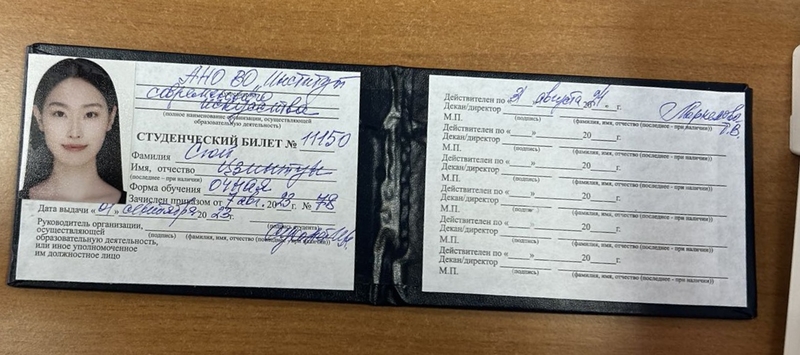 АНО ВО Институт
современного
искусства
(полное наименование организации, осуществляющей
образовательную деятельность)
СТУДЕНЧЕСКИЙ БИЛЕТ № 11150
Фамилия Сюй
Имя, отчество
(последнее – при наличии)
Форма обучения очная
Зачислен приказом от 7 авг. 2023 г. № 78
Дата выдачи «01» сентября 2023 г.
Руководитель организации,
осуществляющей
образовательную деятельность,
или иное уполномоченное
им должностное лицо
(подпись) (фамилия, имя, отчество (последнее – при наличии))
Действителен по «31» августа 20 г.
Декан/директор
М.П. (подпись) (фамилия, имя, отчество (последнее - при наличии))
Действителен по «___» ______ 20___г.
Декан/директор
М.П. (подпись) (фамилия, имя, отчество (последнее - при наличии))
Действителен по «___» ______ 20___г.
Декан/директор
М.П. (подпись) (фамилия, имя, отчество (последнее - при наличии))
Действителен по «___» ______ 20___г.
Декан/директор
М.П. (подпись) (фамилия, имя, отчество (последнее - при наличии))
Действителен по «___» ______ 20___г.
Декан/директор
М.П. (подпись) (фамилия, имя, отчество (последнее - при наличии))
Действителен по «___» ______ 20___г.
Декан/директор
М.П. (подпись) (фамилия, имя, отчество (последнее - при наличии))